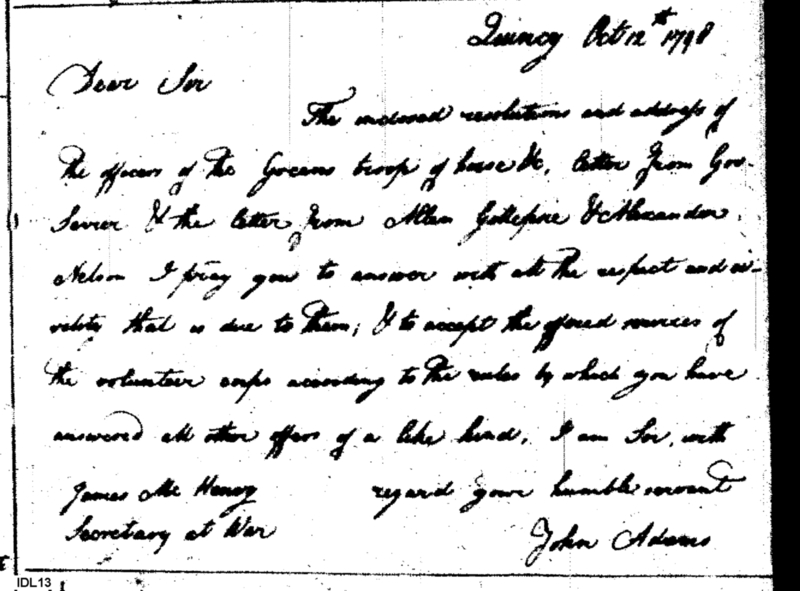 Quincy Oct 12th 1798
Dear Sir
The inclosed resolutions and address of
the officers of the Greens troop of horse &c, letter from Gov-
Sevier & the letter from Allan Gillespie & Alexander
Nelson I pray you to answer with all the respect and ci-
vility that is due to them; & to accept the offered services of
the volunteer corps according to the rules by which you have
answered all other offers of a like kind. I am Sir, with
James Mc Henry regard your humble servant
Secretary at War John Adams
IDL13